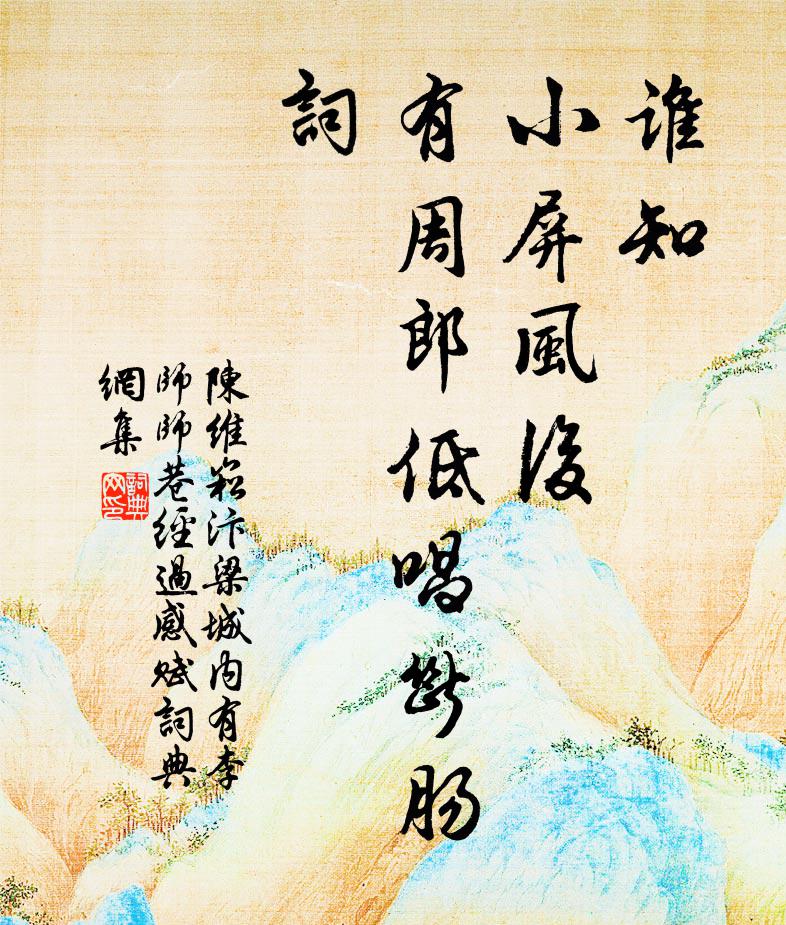 誰知
小屏風後
有周郎低唱斷腸
詞
陳維崧汴梁城内有李
師師巷經過感賦詞典
網集
詞典
网印